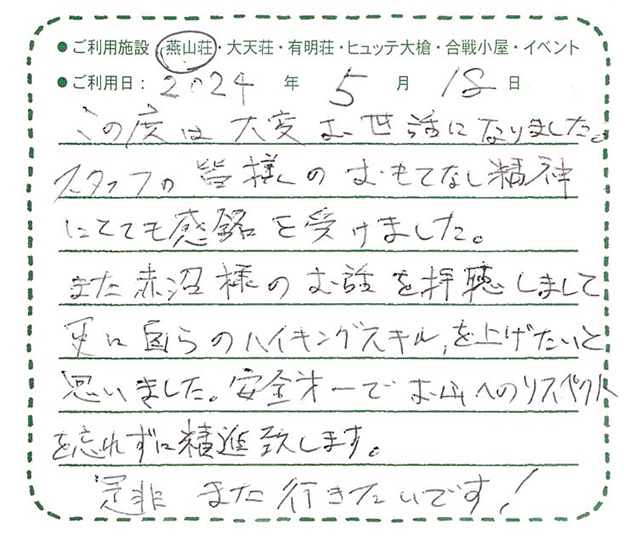 ●ご利用施設 燕山荘・大天荘・有明荘・ヒュッテ大槍・合戦小屋・イベント
●ご利用日: 2024 年 5 月 18 日
この度は大変お世話になりました。
スタッフの皆様のおもてなし精神
にとても感銘を受けました。
また赤沼様のお話を拝聴しまして
更に自らのハイキングスキルを上げたいと
思いました。安全才一でお山へのリスペクト
を忘れずに精進致します。
是非また行きたいです!